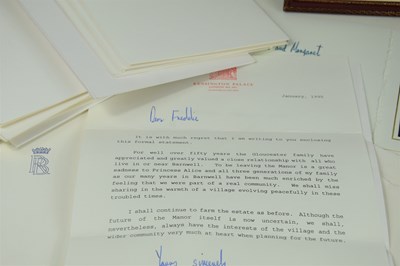 and Margaret
KENSINGTON PALACE
January, 1995
Dear Freddie
It is with much regret that I am writing to you enclosing
this formal statement.
For well over fifty years the Gloucester family have
appreciated and greatly valued a close relationship with all who
live in or near Barnwell. To be leaving the Manor is a great
sadness to Princess Alice and all three generations of my family
as our many years in Barnwell have been much enriched by the
feeling that we were part of a real community. We shall miss
sharing in the warmth of a village evolving peacefully in these
troubled times.
I shall continue to farm the estate as before. Although the
future of the Manor itself is now uncertain, we shall,
nevertheless, always have the interests of the village and the
wider community very much at heart when planning for the future.
Yours sincerely